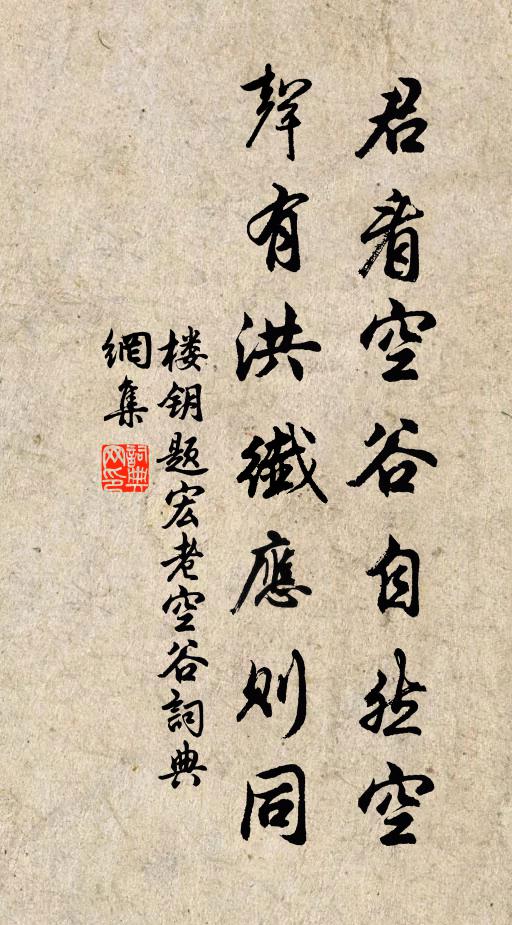 君看空谷自然空
聲有洪纖應則同
楼钥题宏老空谷詞典
網集
詞典
网印